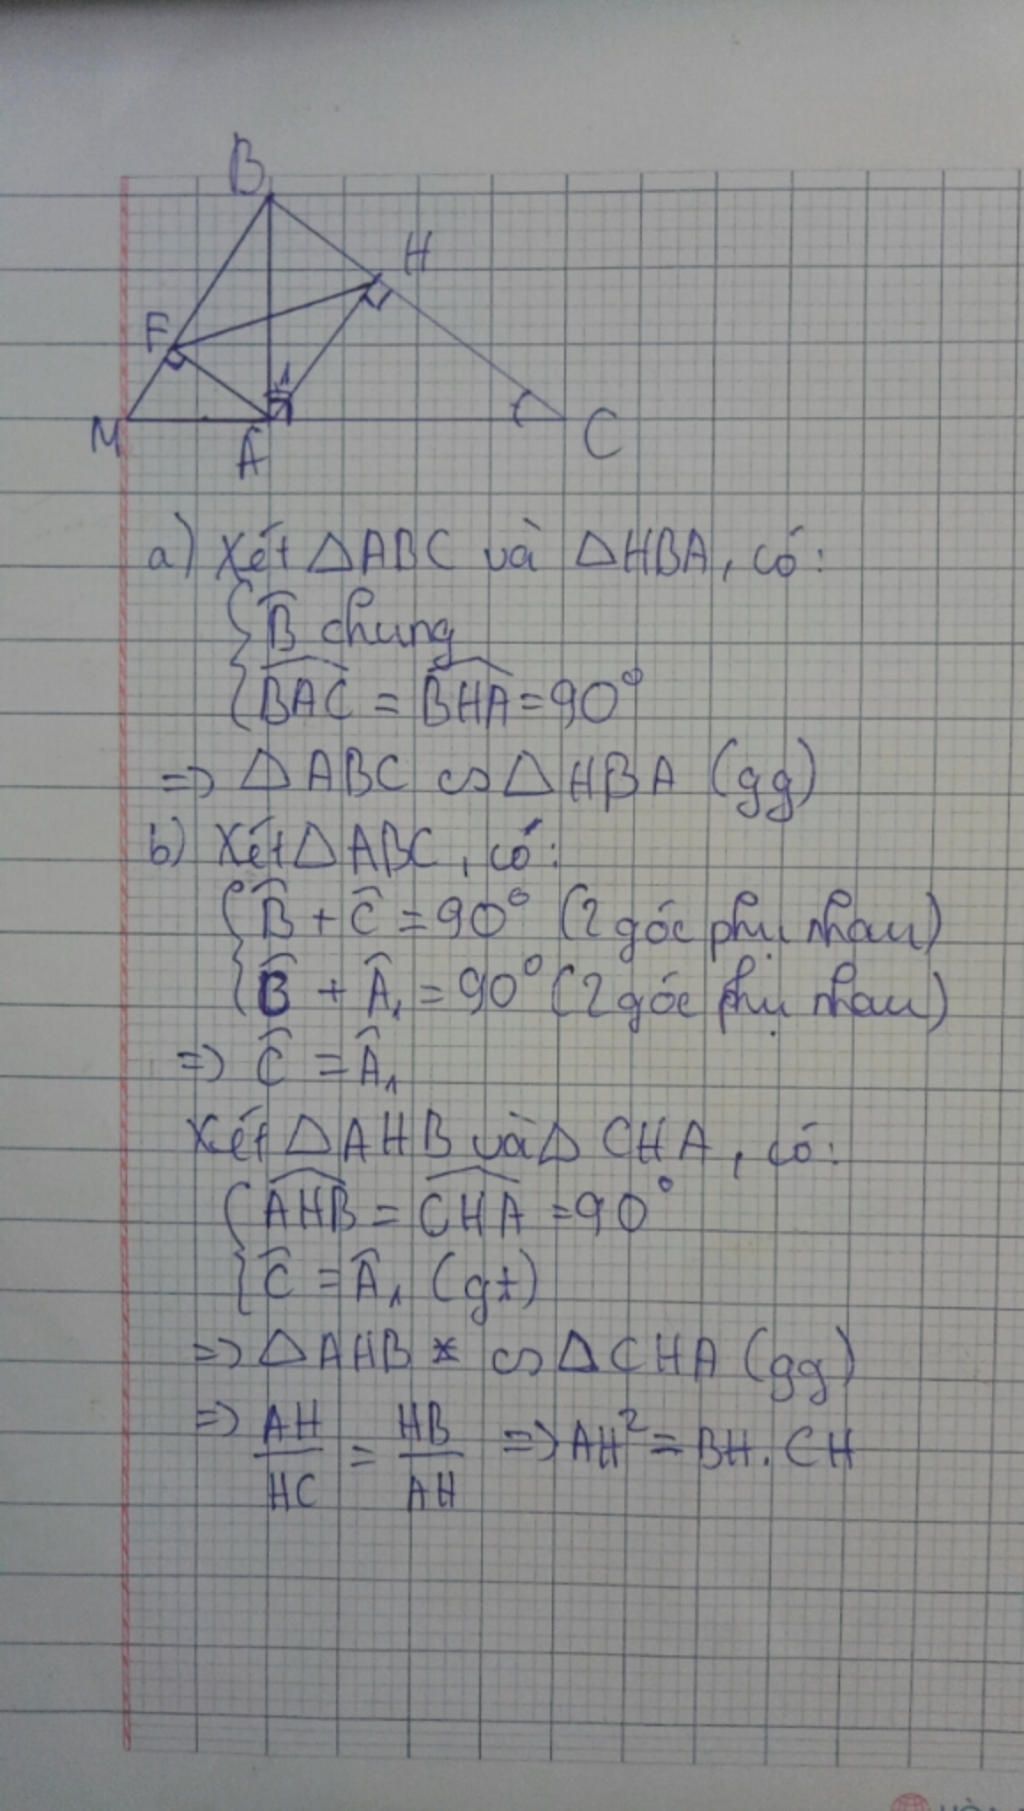 B
H
F
1
M
A
C
a) Xét △ABC và △HBA, có:
{ B̂ chung
{ BAC^ = BHA^ = 90°
=> △ABC ∽ △HBA (gg)
b) Xét △ABC, có:
{ B̂ + Ĉ = 90° (2 góc phụ nhau)
{ B̂ + Â₁ = 90° (2 góc phụ nhau)
=> Ĉ = Â₁
Xét △AHB và △CHA, có:
{ AHB^ = CHA^ = 90°
{ Ĉ = Â₁ (gt)
=> △AHB ∽ △CHA (gg)
=> AH/HC = HB/AH => AH² = BH.CH